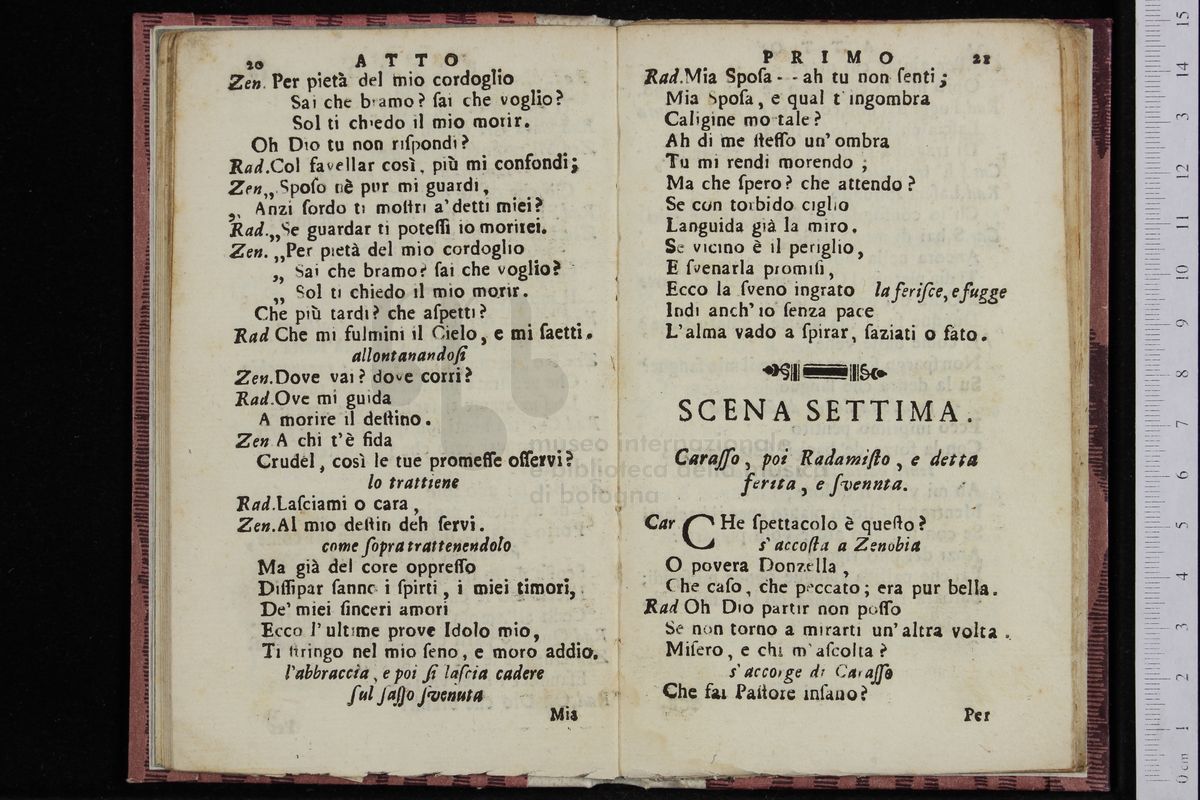 20 ATTO
Zen. Per pietà del mio cordoglio
Sai che bramo? ſai che voglio?
Sol ti chiedo il mio morir.
Oh Dio tu non riſpondi?
Rad. Col favellar così, più mi confondi;
Zen. „ Spoſo nè pur mi guardi,
„ Anzi ſordo ti moſtri a' detti miei?
Rad. „ Se guardar ti poteſſi io morirei.
Zen. „ Per pietà del mio cordoglio
„ Sai che bramo? ſai che voglio?
„ Sol ti chiedo il mio morir.
Che più tardi? che aſpetti?
Rad Che mi fulmini il Cielo, e mi ſaetti.
allontanandoſi
Zen. Dove vai? dove corri?
Rad. Ove mi guida
A morire il deſtino.
Zen A chi t'è fida
Crudel, così le tue promeſſe oſſervi?
lo trattiene
Rad. Laſciami o cara,
Zen. Al mio deſtin deh ſervi.
come ſopra trattenendolo
Ma già del core oppreſſo
Diſſipar ſanno i ſpirti, i miei timori,
De' miei ſinceri amori
Ecco l'ultime prove Idolo mio,
Ti ſtringo nel mio ſeno, e moro addio.
l'abbraccia, e poi ſi laſcia cadere
ſul ſaſſo ſvenuta
Mia
PRIMO 21
Rad. Mia Spoſa - - ah tu non ſenti;
Mia Spoſa, e qual t'ingombra
Caligine mortale?
Ah di me ſteſſo un' ombra
Tu mi rendi morendo;
Ma che ſpero? che attendo?
Se con torbido ciglio
Languida già la miro.
Se vicino è il periglio,
E ſvenarla promiſi,
Ecco la ſveno ingrato la feriſce, e fugge
Indi anch' io ſenza pace
L'alma vado a ſpirar, ſaziati o fato.
SCENA SETTIMA.
Caraſſo, poi Radamiſto, e detta
ferita, e ſvennta.
Car CHe ſpettacolo è queſto?
s' accoſta a Zenobia
O povera Donzella,
Che caſo, che peccato; era pur bella.
Rad Oh Dio partir non poſſo
Se non torno a mirarti un' altra volta.
Miſero, e chi m' aſcolta?
s' accorge di Caraſſo
Che fai Paſtore inſano?
Per
museo internazionale
e biblioteca della musica
di bologna
0 cm 1 2 3 4 5 6 7 8 9 10 11 12 13 14 15